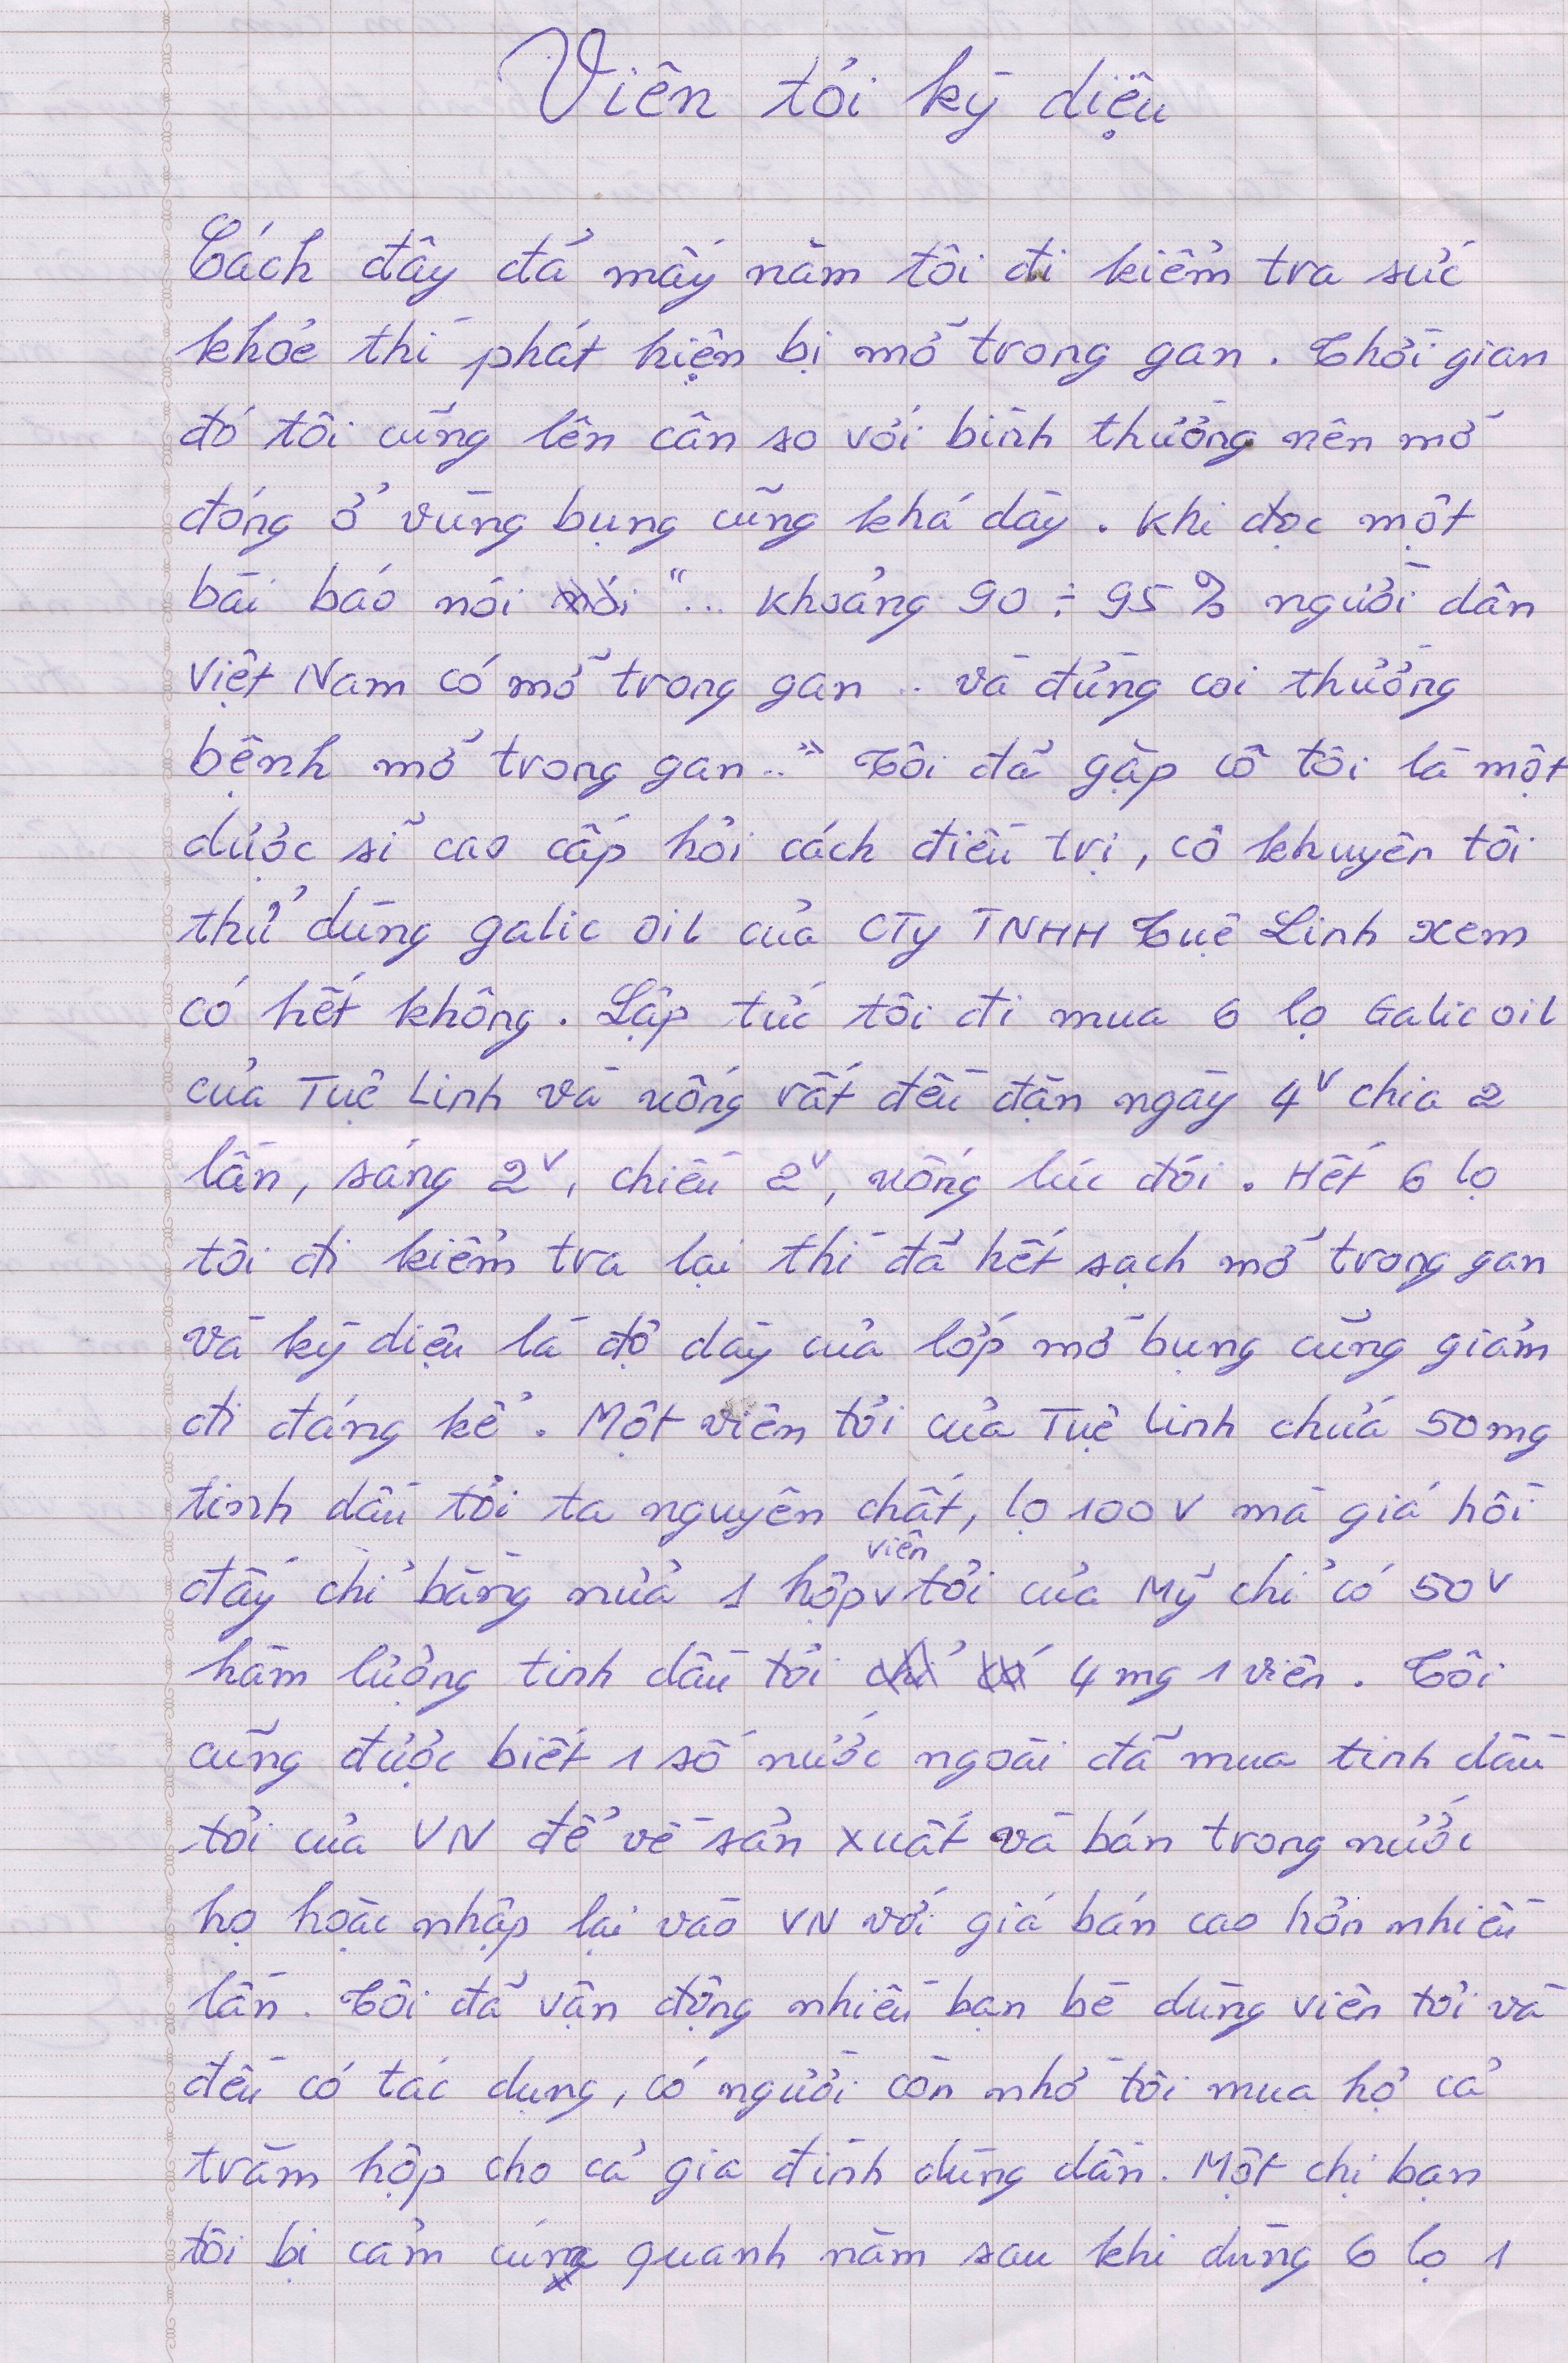 Viên tỏi kỳ diệu
Cách đây đã mấy năm tôi đi kiểm tra sức
khỏe thì phát hiện bị mỡ trong gan. Thời gian
đó tôi cũng lên cân so với bình thường nên mỡ
đóng ở vùng bụng cũng khá dày. Khi đọc một
bài báo nói "... khoảng 90 ÷ 95% người dân
Việt Nam có mỡ trong gan .. và đừng coi thường
bệnh mỡ trong gan.." Tôi đã gặp cô tôi là một
dược sĩ cao cấp hỏi cách điều trị, cô khuyên tôi
thử dùng galic oil của CTy TNHH Tuệ Linh xem
có hết không. Lập tức tôi đi mua 6 lọ Galic oil
của Tuệ Linh và uống rất đều đặn ngày 4v chia 2
lần, sáng 2v, chiều 2v, uống lúc đói. Hết 6 lọ
tôi đi kiểm tra lại thì đã hết sạch mỡ trong gan
và kỳ diệu là độ dày của lớp mỡ bụng cũng giảm
đi đáng kể. Một viên tỏi của Tuệ Linh chứa 50mg
tinh dầu tỏi ta nguyên chất, lọ 100v mà giá hồi
đấy chỉ bằng nửa 1 hộp viên tỏi của Mỹ chỉ có 50v
hàm lượng tinh dầu tỏi 4mg 1 viên. Tôi
cũng được biết 1 số nước ngoài đã mua tinh dầu
tỏi của VN để về sản xuất và bán trong nước
họ hoặc nhập lại vào VN với giá bán cao hơn nhiều
lần. Tôi đã vận động nhiều bạn bè dùng viên tỏi và
đều có tác dụng, có người còn nhờ tôi mua hộ cả
trăm hộp cho cả gia đình dùng dần. Một chị bạn
tôi bị cảm cúm quanh năm sau khi dùng 6 lọ 1